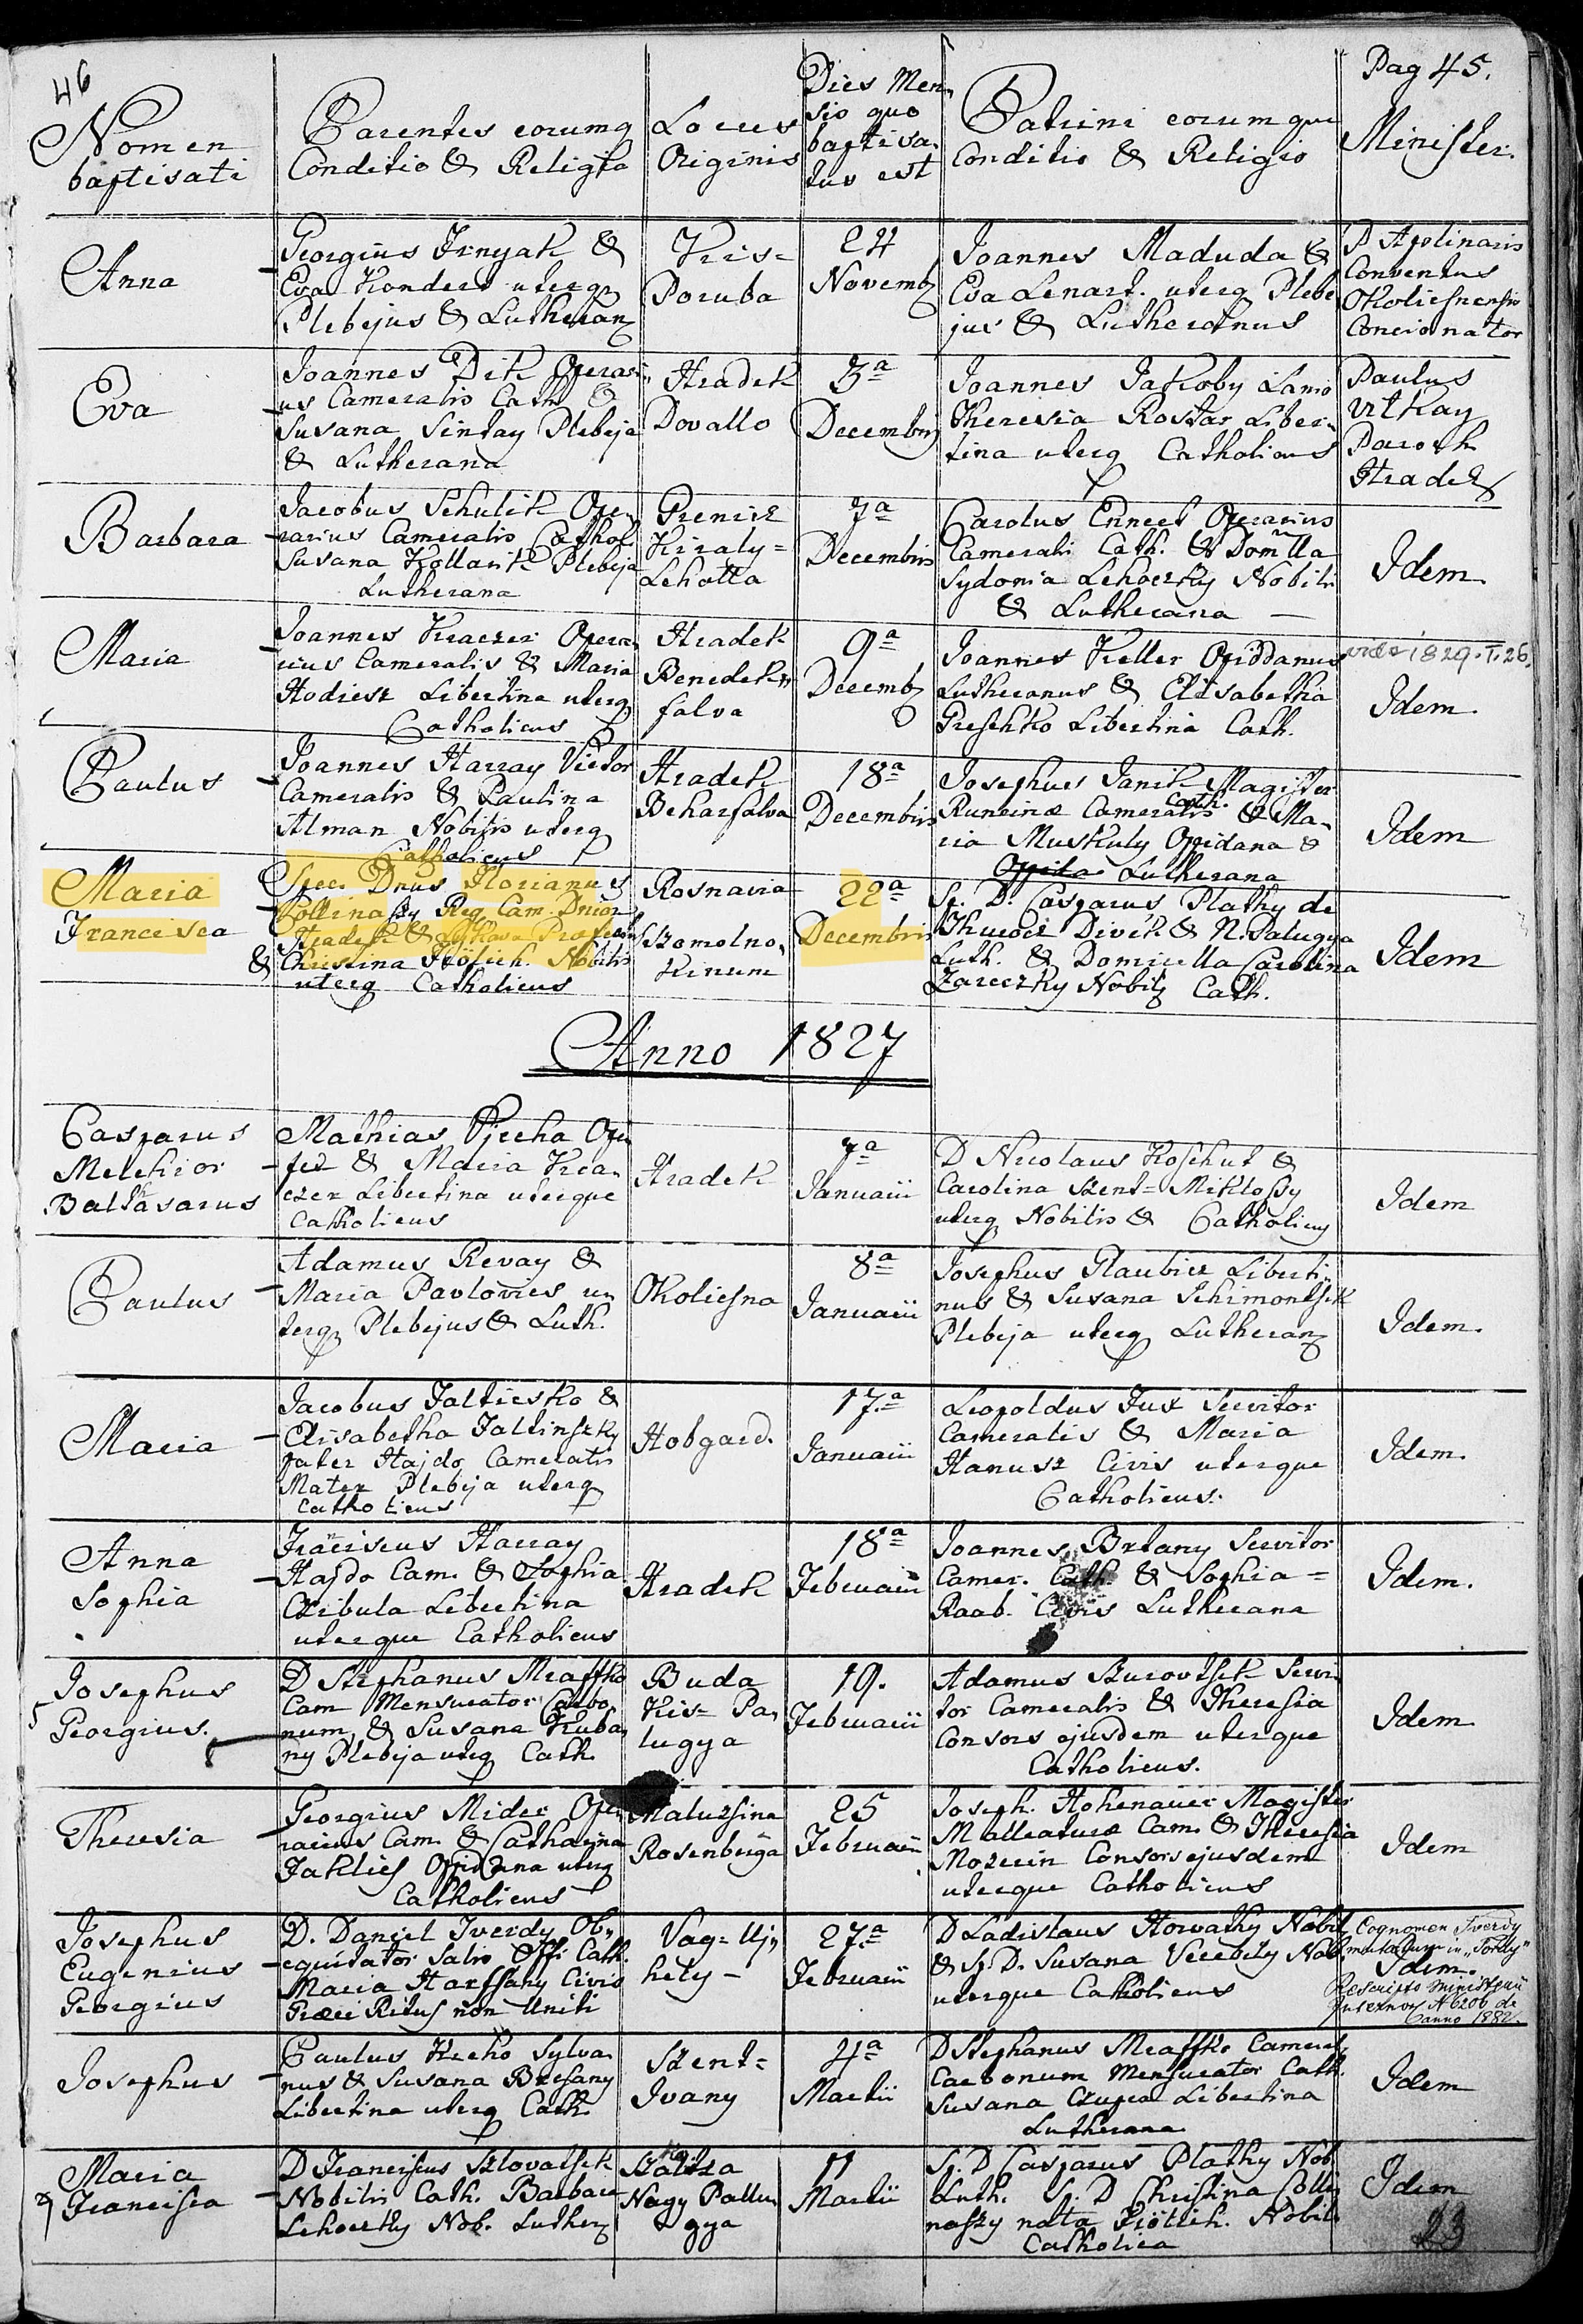 46
Pag 45.
Nomen
baptisati
Parentes eorumq
Conditio & Religio
Locus
Originis
Dies Men
sis quo
baptisa
tus est
Patrini eorumque
Conditio & Religio
Minister
Anna
Georgius &
Eva Konders uterq
Plebejus & Lutheran
Kis=
Poruba
24
Novemb
Joannes Maduda &
Eva Lenart. uterq Plebe
jus & Lutheranus
P Apolinaris
Conventus
Okolicsnensis
Concionator
Eva
Joannes Dik Operari
us Cameralis Cath &
Susana Sintay Plebeja
& Lutherana
Hradek
Dovallo
3a
Decembris
Joannes Jakoby Lanio
Theresia Rostar Liber
tina uterq Catholicus
Paulus
Vitkay
Paroch
Hradek
Barbara
Jacobus Schulik Ope
rarius Cameralis Cathol
Susana Kollarik Plebeja
Lutherana
Kiraly=
Lehotta
7a
Decembris
Carolus Ennert Operarius
Cameralis Cath. & Domlla
Sydonia Lehoczky Nobilis
& Lutherana —
Idem
Maria
Joannes Kraczer Opera
rius Cameralis & Maria
Hodiesz Libertina uterq
Catholicus
Hradek
Benedek
falva
9a
Decemb
Joannes Keller Opidanus
Lutheranus & Elisabetha
Preschko Libertina Cath.
vide 1829. I. 26.
Idem.
Paulus
Joannes Harray Vietor
Cameralis & Paulina
Alman Nobilis uterq
Catholicus
Hradek
Beharfalva
18a
Decembris
Josephus Janik Magister
Runcinæ Cameralis Cath. & Ma
ria Muskuly Opidana &
Opida Lutherana
Idem
Maria
Francisca
Spec. Dnus Florianus
Collinaszy Reg. Cam. Dnior
Hradek & Lykava Præfectus
& Christina Nobilis
uterq Catholicus
Rosnavia
Szomolno
kinum
22a
Decembris
Sp. D. Casparus Plathy de
Thurocz Divék & N. Palugya
Luth. & Domicella Carolina
Zareczky Nobil Cath.
Idem
Anno 1827
Casparus
Melchior
Balthasarus
Mathias Pjecha Opi
fex & Maria Kra
czer Libertina uterque
Catholicus
Hradek
7a
Januarii
D Nicolaus Koschut &
Carolina Szent=Miklossy
uterq Nobilis & Catholicus
Idem
Paulus
Adamus Revay &
Maria Pavlovics u
terq Plebejus & Luth.
Okolicsna
8a
Januarii
Josephus Glaubicz Liberti
nus & Susana Schimontsik
Plebeja uterq Lutheran
Idem.
Maria
Jacobus Faltiesko &
Elisabetha Faltinszky
pater Hajdo Cameralis
Mater Plebeja uterq
Catholicus
Hobgard.
17.a
Januarii
Leopoldus Fux Servitor
Cameralis & Maria
Hanusz Civis uterque
Catholicus.
Idem.
Anna
Sophia
Franciscus Harray
Hajdo Cam. & Sophia
Czibula Libertina
uterque Catholicus
Hradek
18a
Februarii
Joannes Brtany Servitor
Camer. Cath. & Sophia =
Raab. Civis Lutherana
Idem.
Josephus
Georgius.
D Stephanus Mraffko
Cam Mensurator Carbo
num & Susana Kuba
ny Plebeja uterq Cath.
Buda
Kis= Pa
lugya
19.
Februarii
Adamus Szurovtsik Servi
tor Cameralis & Theresia
Consors ejusdem uterque
Catholicus.
Idem
Theresia
Georgius Mider Ope
rarius Cam. & Catharina
Opidana uterq
Catholicus
Maluzsina
Rosenberga
25
Februarii
Joseph. Hohenauer Magister
Malleaturæ Cam. & Theresia
Mozerin Consors ejusdem
uterque Catholicus
Idem
Josephus
Eugenius
Georgius
D. Daniel Tverdy Ob
equitator Salis Off. Cath.
Maria Harssany Civis
Græci Ritus non Uniti
Vag=Uj
hely —
27.a
Februarii
D Ladislaus Horvathy Nobil
& Sp. D. Susana Verebely Nob
uterque Catholicus
Cognomen Tverdy
mutatum in "Tordy"
Idem.
Rescripto Ministerii
Interno N 6206 de
anno 1882.
Josephus
Paulus Krcho Sylva
nus & Susana Bresany
Libertina uterq Cath.
Szent=
Ivany
4a
Martii
D Stephanus Mraffko Cameral
Carbonum Mensurator Cath.
Susana Czupra Libertina
Lutherana
Idem
Maria
Francisca
D Franciscus Szlovatsek
Nobilis Cath. Barbara
Lehoczky Nob. Luther
Nagy Pallu
gya
11
Martii
Sp. D Casparus Plathy Nob
Luth. Sp. D Christina Colli
naszy nata Nobilis
Catholica
Idem
23